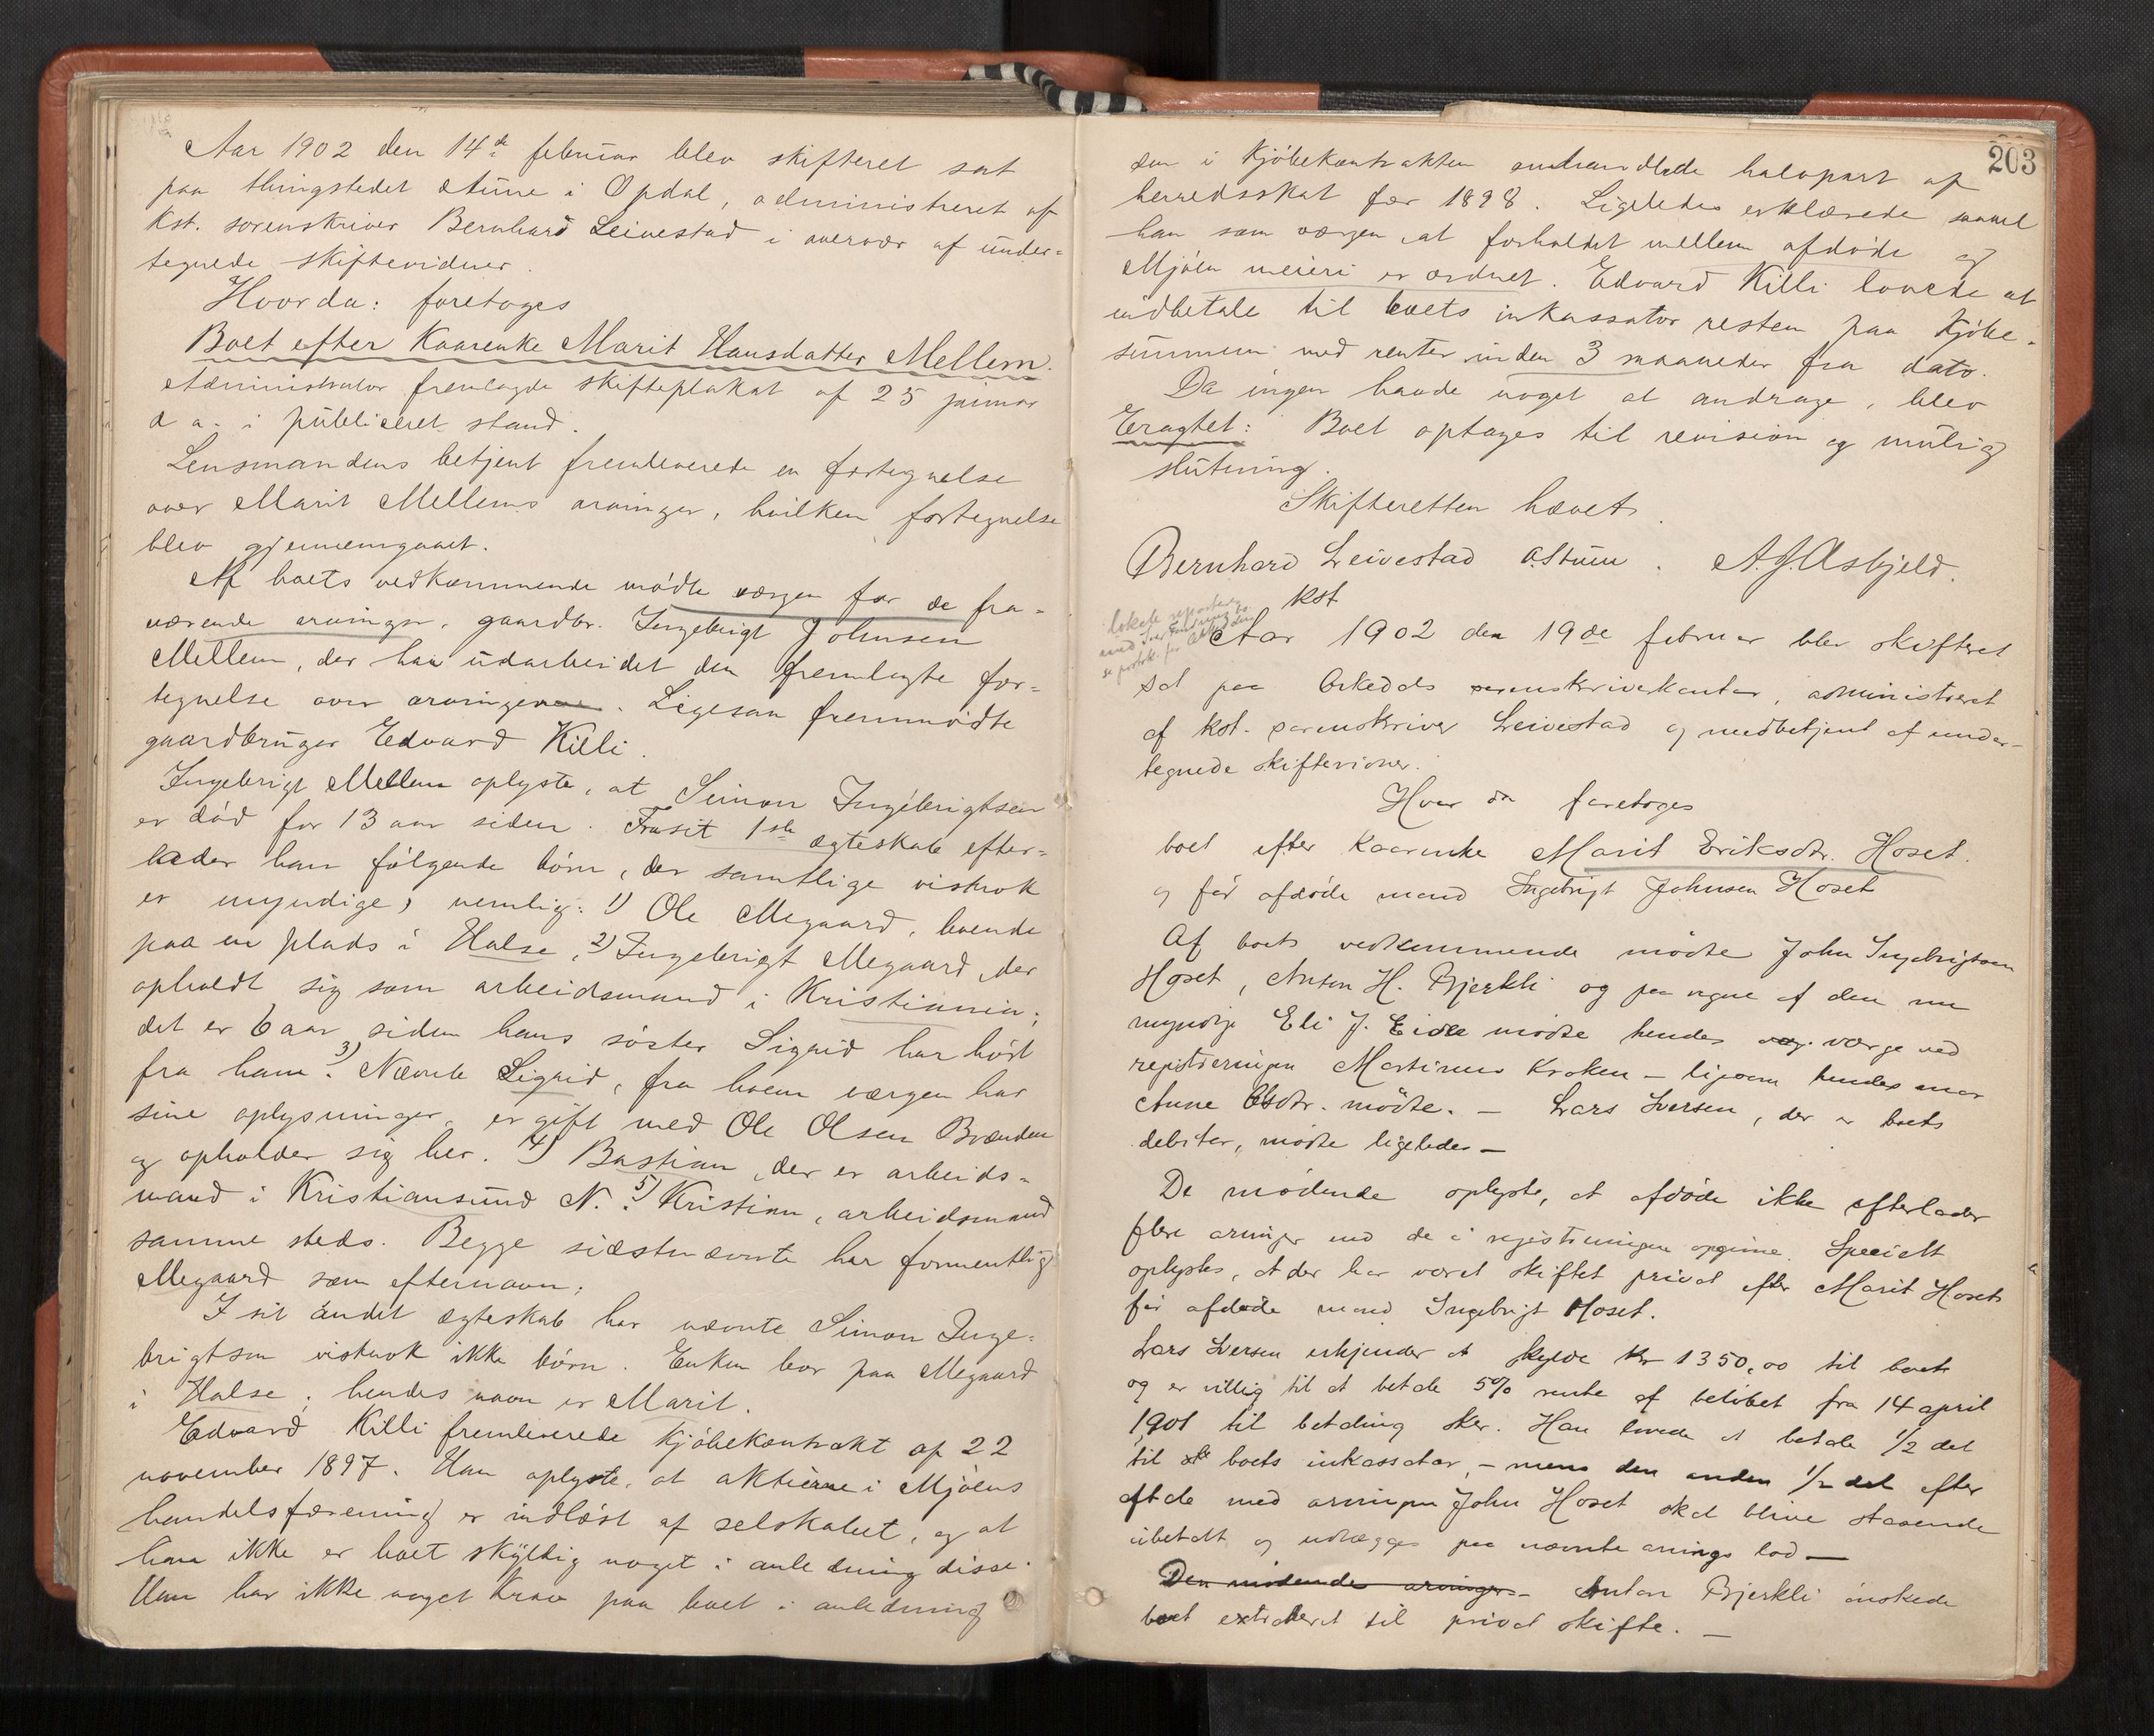 Aar 1902 den 14de februar blev skifteret sat
paa thingstedet Aune i Opdal, administreret af
kst. sorenskriver Bernhard Leivestad i overvær af under=
tegnede skiftevidner.
Hvorda: foretoges
Boet efter Kaarenke Marit Hansdatter Mellem.
Administrator fremlagde skifteplakat af 25 januar
d a. i publiceret stand.
Lensmandens betjent fremleverede en fortegnelse
over Marit Mellems arvinger, hvilken fortegnelse
blev gjennemgaaet.
Af boets vedkommende mødte værgen for de fra=
værende arvinger, gaardbr. Ingebrigt Johnsen
Mellem, der har udarbeidet den fremlagte for=
tegnelse over arvingerne. Ligesaa fremmødte
gaardbruger Edvard Killi.
Ingebrigt Mellem oplyste, at Simon Ingebrigtsen
er død for 13 aar siden. Fra sit 1ste ægteskab efter=
lader han følgende børn, der samtlige vistnok
er myndige, nemlig: 1) Ole Megaard, boende
paa en plads i Halse, 2) Ingebrigt Megaard der
opholdt sig som arbeidsmand i Kristiania;
det er 6 aar siden hans søster Sigrid har hørt
fra ham. 3) Nævnte Sigrid, fra hvem værgen har
sine oplysninger, er gift med Ole Olsen Brænden
og opholder sig her. 4) Bastian, der er arbeids=
mand i Kristiansund N. 5) Kristian, arbeidsmand
samme steds. Begge sidstnævnte har formentlig
Megaard som efternavn.
I sit andet ægteskab har nævnte Simon Inge=
brigtsen vistnok ikke børn. Enken bor paa Megaard
i Halse; hendes navn er Marit.
Edvard Killi fremleverede kjøbekontrakt af 22
november 1897. Han oplyste, at aktierne i Mjøens
handelsforening er indløst af selskabet, og at
han ikke er boet skyldig noget i anledning disse.
Han har ikke noget krav paa boet i anledning
203
den i kjøbekontrakten omhandlede halvpart af
herredsskat for 1898. Ligeledes erklærede saavel
han som værgen, at forholdet mellem afdøde og
Mjøen meieri er ordnet. Edvard Killi lovede at
indbetale til boets inkassator resten paa kjøbe=
summen med renter inden 3 maaneder fra dato.
Da ingen havde noget at andrage, blev
Eragtet: Boet optages til revision og mulig
slutning.
Skifteretten hævet.
Bernhard Leivestad A Stuen. A. J. Asbjeld.
kst
Aar 1902 den 19de februar blev skifteret
sat paa Orkedals sorenskriverkontor, administreret
af kst. sorenskriver Leivestad og medbetjent af under-
tegnede skiftevidner.
Hvor da foretoges
boet efter kaarenke Marit Eriksdtr. Hoset.
og før afdøde mand Ingebrigt Johnsen Hoset
Af boets vedkommende mødte John Ingebrigtsen
Hoset, Anton H. Bjerkli og paa vegne af den um
myndige Eli J. Eide mødte hendes værge ved
registreringen Martinus Kroken – ligesom hendes mor
Anne Olsdtr. mødte. – Lars Iversen, der er boets
debitor, mødte ligeledes –
De mødende oplyste, at afdøde ikke efterlader
flere arvinger end de i registreringen opgivne. Specielt
oplystes, at der har været skiftet privat efter Marit Hosets
før afdøde mand Ingebrigt Hoset.
Lars Iversen erkjender at skylde Kr 1350,00 til boet
og er villig til at betale 5% rente af beløbet fra 14 april
1901 til betaling sker. Han lovede at betale 1/2 det
til boets inkassator, – mens den anden 1/2 del efter
aftale med arvingen John Hoset skal blive staaende
ubetalt og udlægges paa nævnte arvings lod –
Den mødende arvinger – Anton Bjerkli ønskede
boet extraderet til privat skifte. –